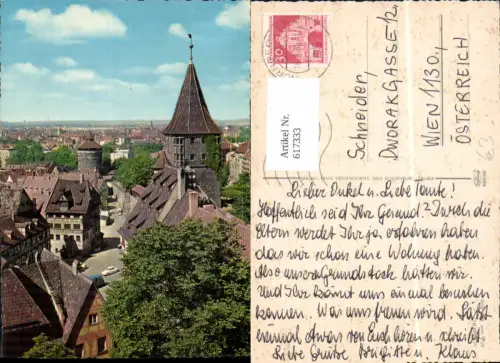 30
Artikel Nr.
617333
Schneider,
DWORAKGASSE 12
WIEN 1130,
ÖSTERREICH
63
Lieber Onkel u. Liebe Tante!
Hoffentlich seid Ihr Gesund? Durch die
Eltern werdet Ihr ja erfahren haben
das wir schon eine Wohnung haben.
Also unseren Grundstock hätten wir.
Und Ihr könnt uns einmal besuchen
kommen. Wir uns freuen wird. Laßt
einmal etwas von Euch hören u. schreibt.
Liebe Grüße Brigitte u. Klaus